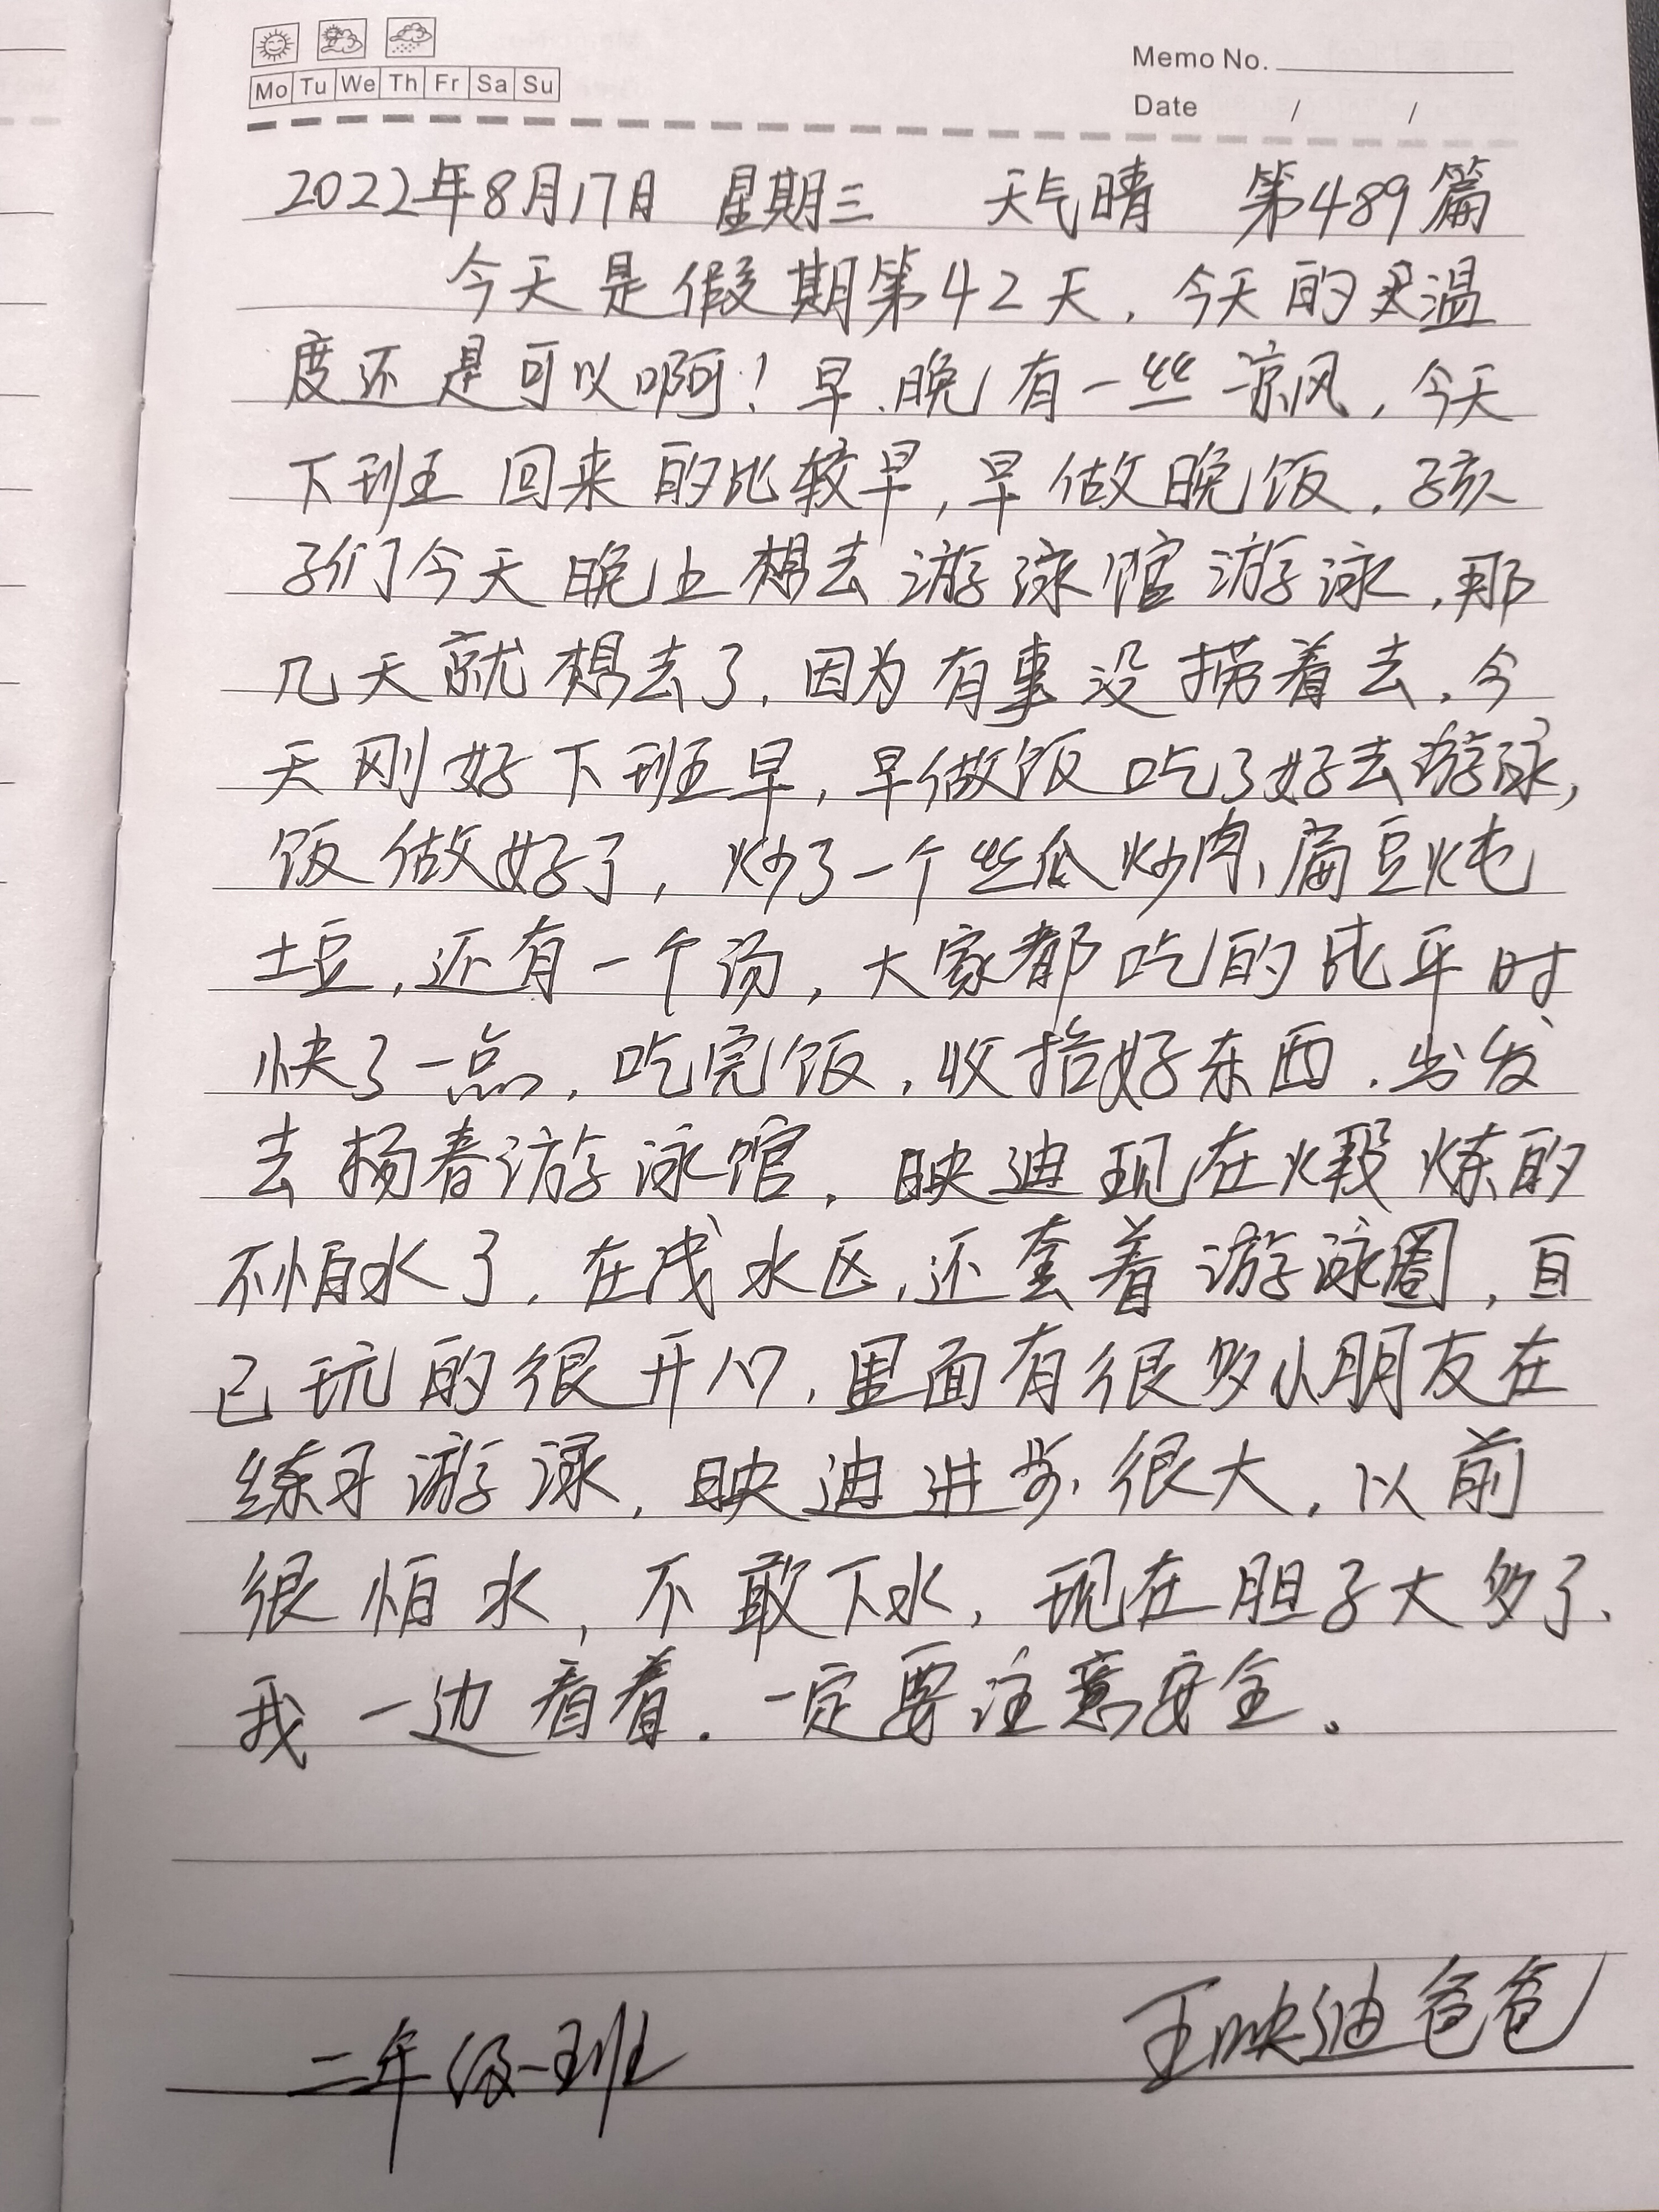 Mo Tu We Th Fr Sa Su
Memo No.
Date / /
2022年8月17日 星期三 天气晴 第489篇
今天是假期第42天，今天的温
度还是可以啊！早、晚有一些凉风，今天
下班回来的比较早，早做晚饭，孩
子们今天晚上想去游泳馆游泳，那
几天就想去了，因为有事没捞着去，今
天刚好下班早，早做饭吃了好去游泳，
饭做好了，炒了一个丝瓜炒肉、扁豆炖
土豆，还有一个汤，大家都吃的比平时
快了一点，吃完饭，收拾好东西，出发
去杨春游泳馆，映迪现在煅炼的
不怕水了，在浅水区，还套着游泳圈，自
己玩的很开心，里面有很多小朋友在
练习游泳，映迪进步很大，以前
很怕水，不敢下水，现在胆子大多了、
我一边看着．一定要注意安全。
二年级一班
王映迪爸爸